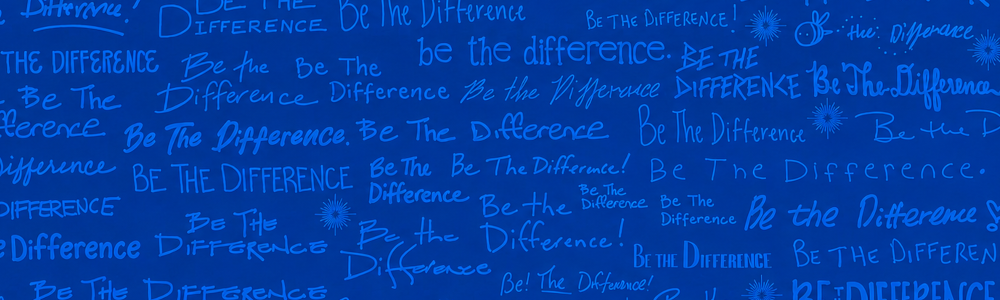 Difference!
BE THE
DIFFERENCE
Be The Difference
BE THE DIFFERENCE!
the Difference
THE DIFFERENCE
Be the
Difference
Be The
Difference
be the difference.
Be the Difference
BE THE
DIFFERENCE
Be The Difference
Be The
Difference
Be The Difference.
Be The Difference
Be The Difference
Be the D
Difference
BE THE DIFFERENCE
Be The
Difference
Be The Difference!
Be The Difference.
DIFFERENCE
Be The
Difference
Be the
Difference!
Be The
Difference
Be The
Difference
Be the Difference!
e Difference
Be the
Difference
BE THE DIFFERENCE
BE THE DIFFEREN
Be The
Be! The Difference!
BE THE DIFFERENCE